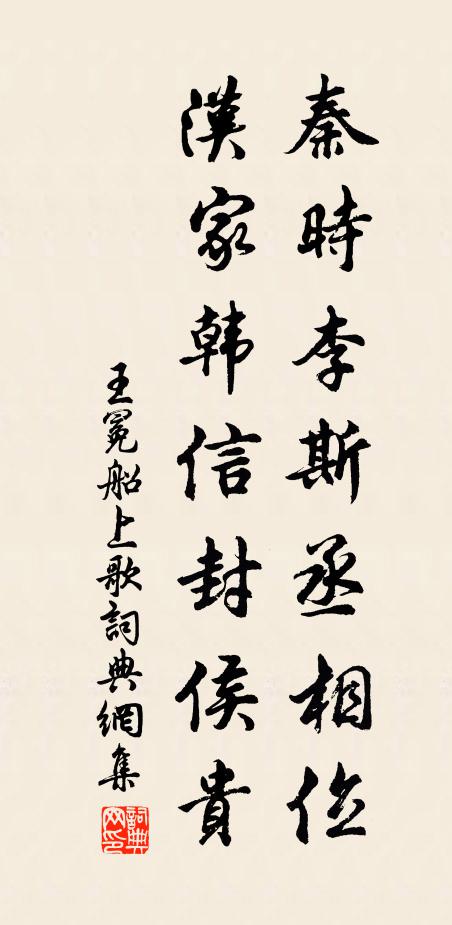 秦時李斯丞相位
漢家韩信封侯貴
王冕船上歌詞典網集
詞典網印